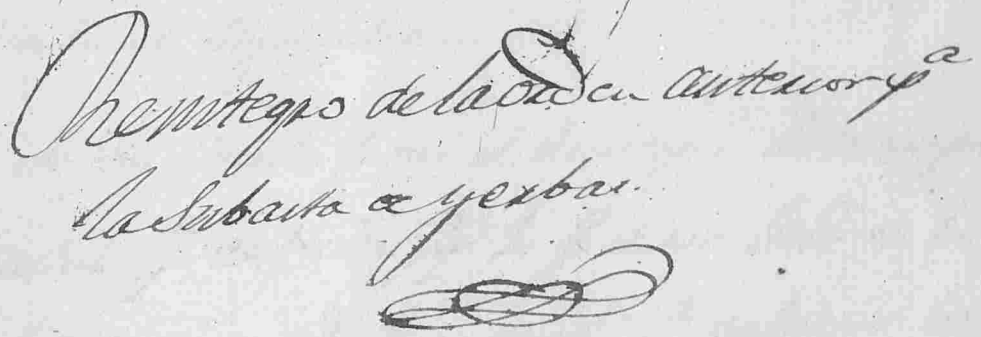 Reintegro de la orden anterior pª
la Subasta de yerbas.